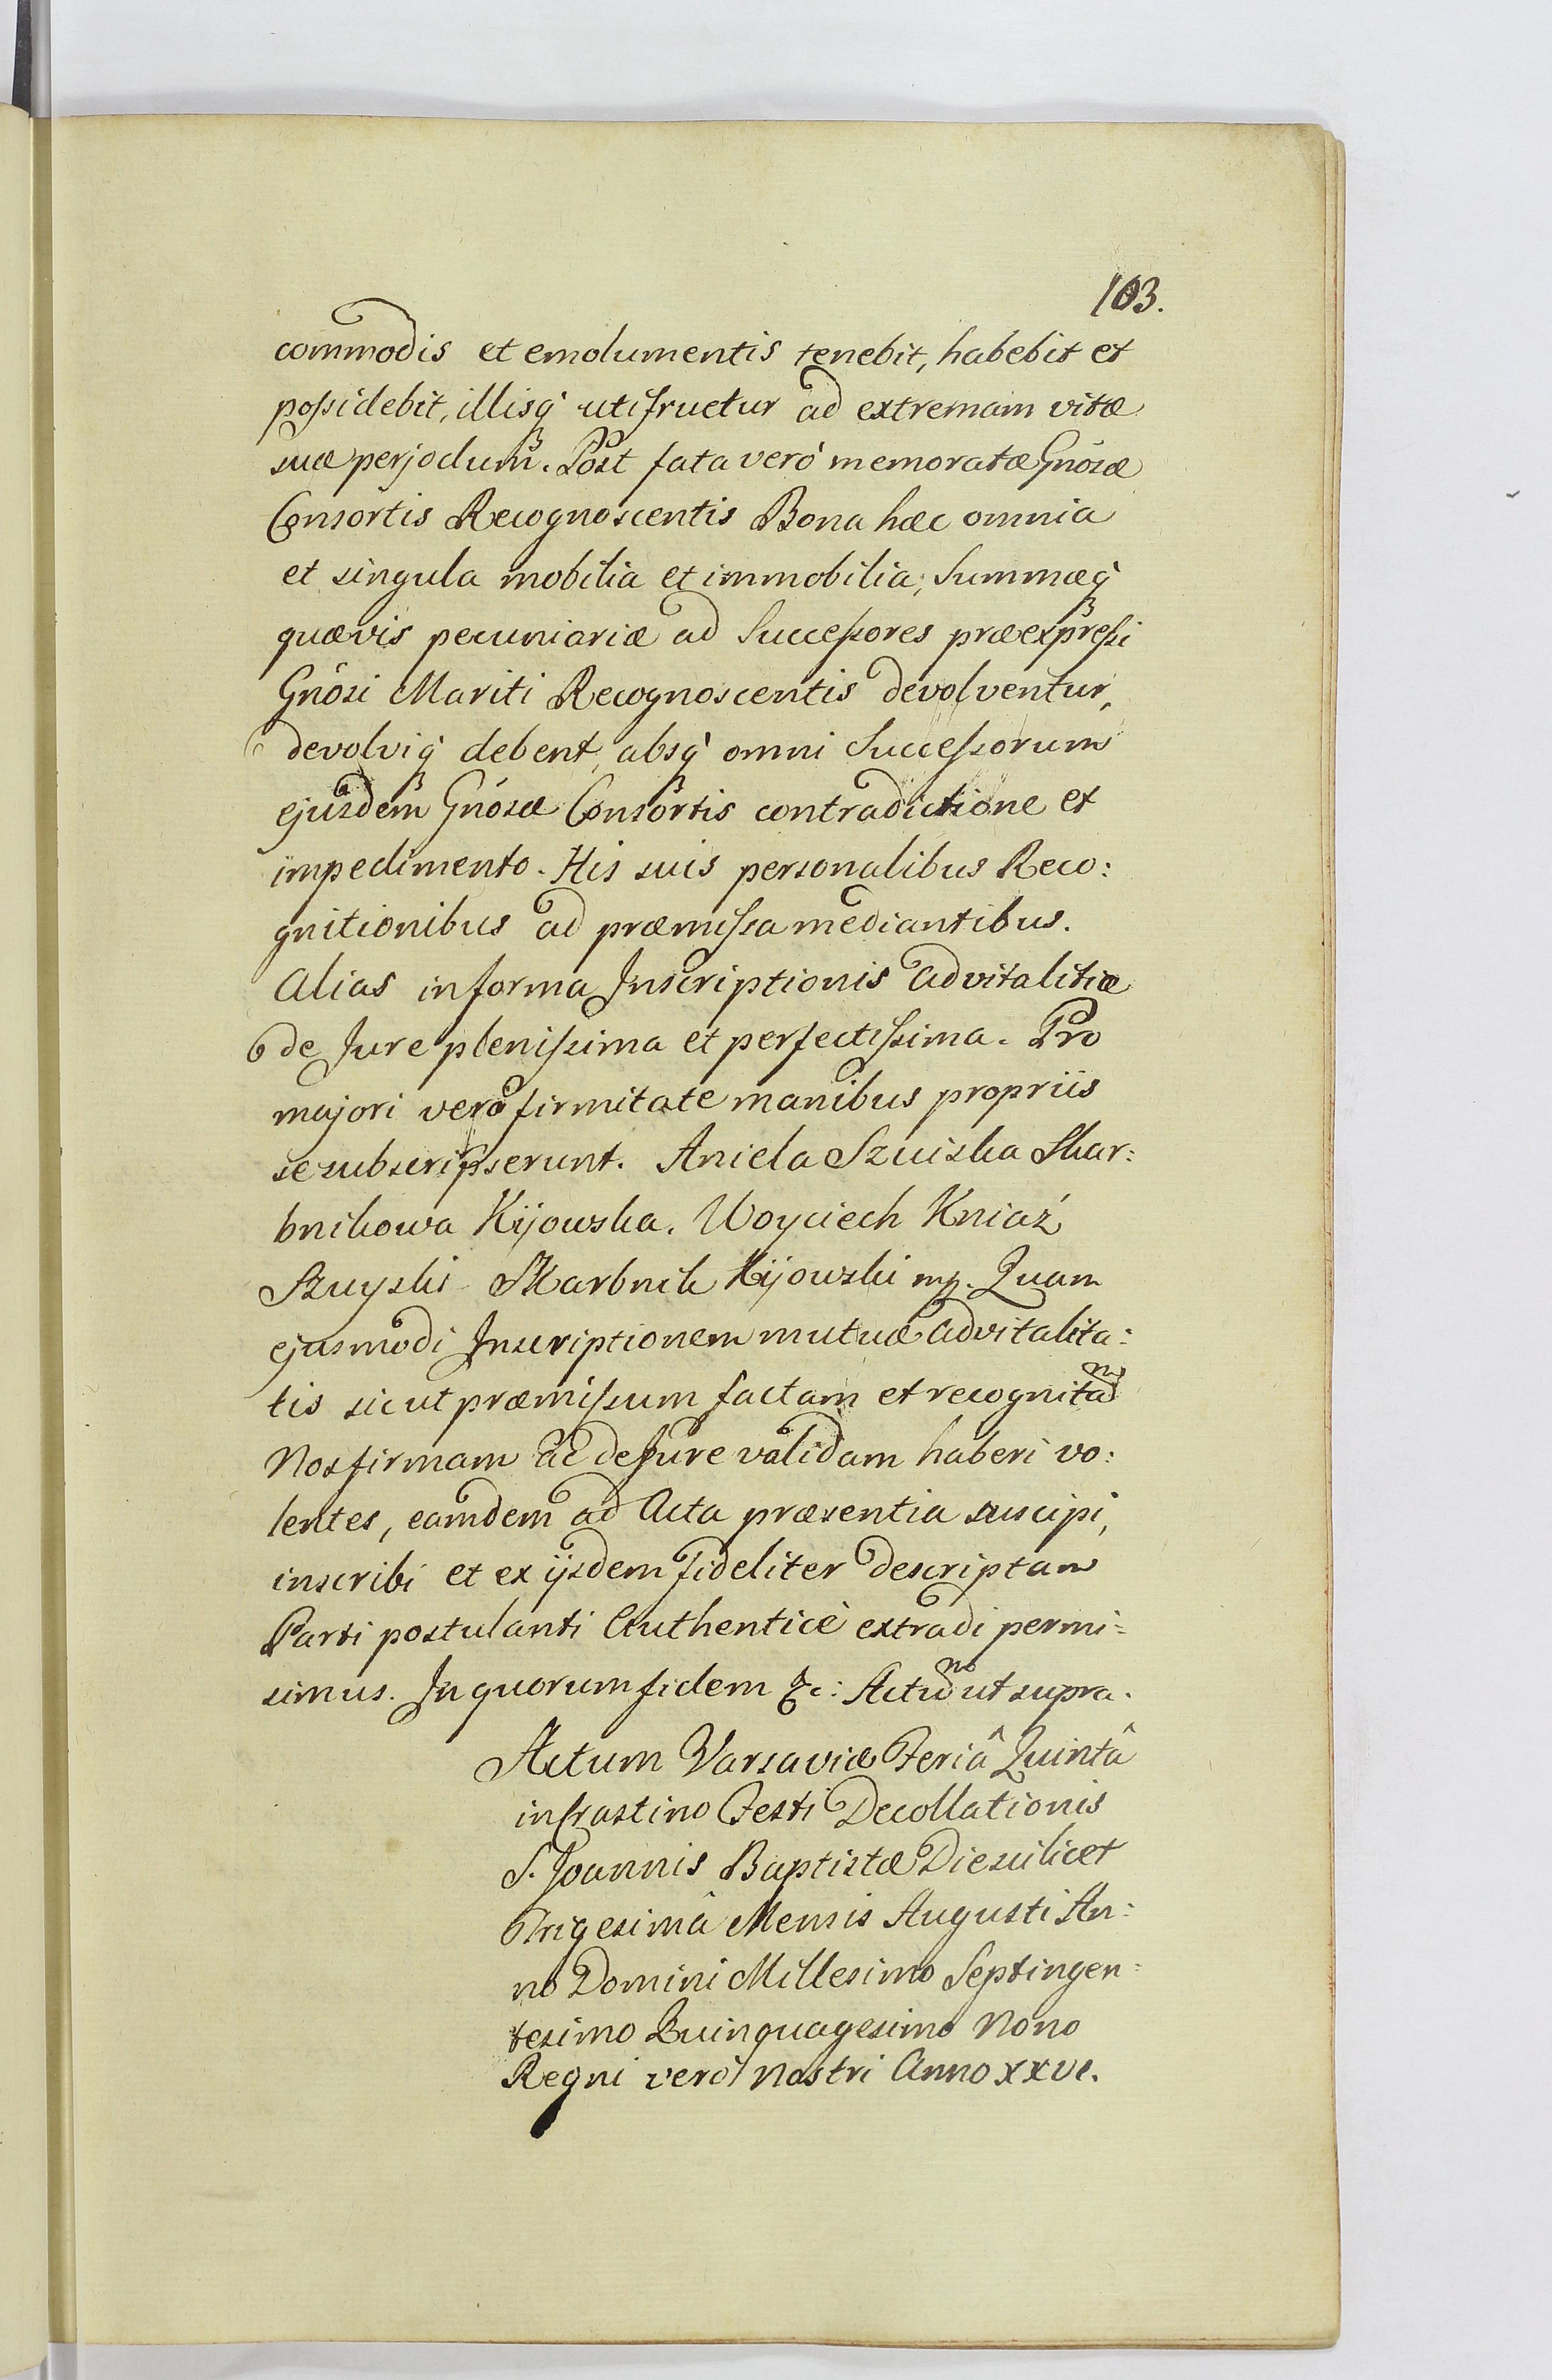 103.
commodis et emolumentis tenebit, habebit et
possidebit, illisq̀ utifruetur ad extremam vitæ
suæ perjodum. Post fata verò memoratæ Gnósæ
Consortis Recognoscentis Bona hæc omnia
et singula mobilia et immobilia, Summæq̀
quævis pecuniariæ ad Successores præexpressi
Gnósi Mariti Recognoscentis devolventur,
devolviq̀ debent, absq̀ omni Successorum
ejusdem Gnósæ Consortis contradictione et
impedimento. His suis personalibus Reco:
gnitionibus ad præmissa mediantibus.
Alias in forma Inscriptionis Advitalitiæ
de Jure plenissima et perfectissima. Pro
majori vero firmitate manibus propriis
se subscripserunt. Aniela Szuiska Skar:
bnikowa Kijowska. Woyciech Kniaź
Szuyski Skarbnik Kijowski mp. Quam
ejusmodi Inscriptionem mutuæ advitalita:
tis sicut præmissum factam et recognitam
Nos firmam ac de Jure validam haberi vo:
lentes, eamdem ad Acta præsentia suscipi,
inscribi et ex ijsdem fideliter descriptam
Parti postulanti Authenticè extradi permi=
simus. In quorum fidem &c: Actum ut supra.
Actum Varsaviæ Feriâ Quintâ
in Crastino Festi Decollationis
S. Joannis Baptistæ Die scilicet
Trigesimâ Mensis Augusti An:
no Domini Millesimo Septingen=
tesimo Quinquagesimo Nono
Regni verò Nostri Anno XXVI.